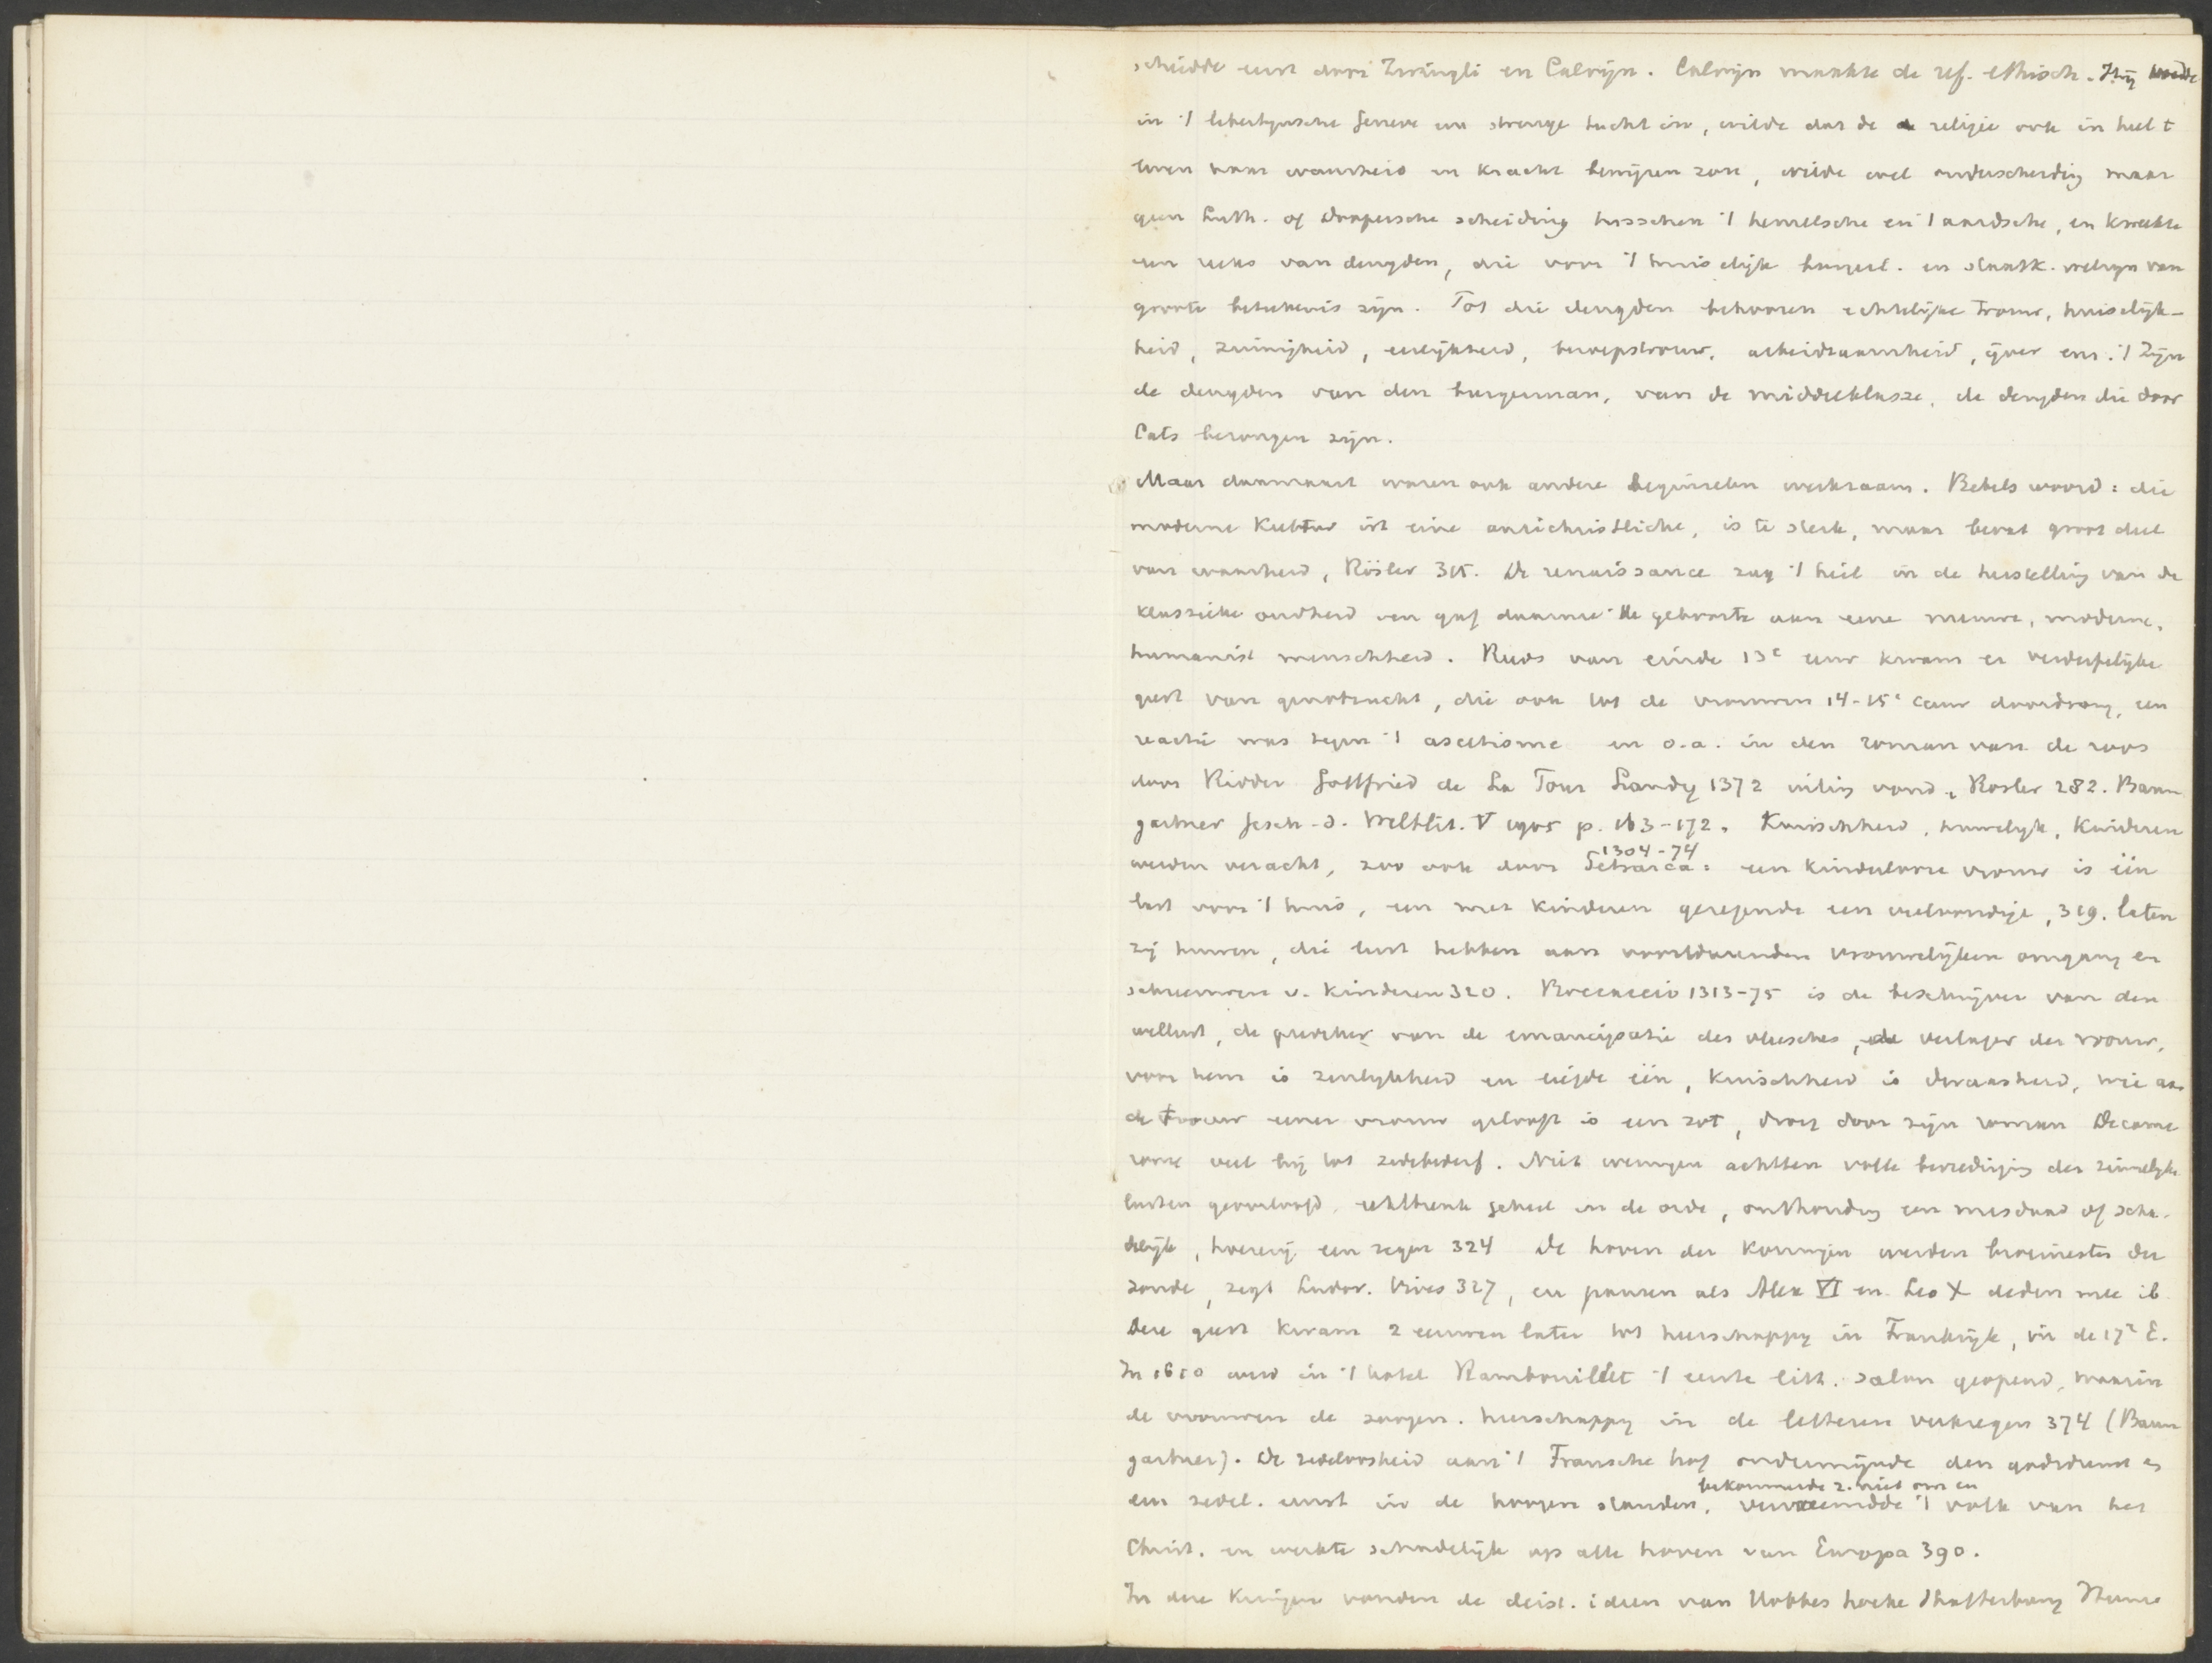 schiedde eerst door Zwingli en Calvijn. Calvijn maakte de ref. ethisch. Hij voerde
in 't libertijnsche Geneve een strenge tucht in, wilde dat de religie ook in heel t
leven haar waarheid en kracht bewijzen zou, wilde wel onderscheiding maar
geen Luth. of Doopersche scheiding tusschen 't hemelsche en 't aardsche, en kweekte
een reeks van deugden, die voor 't huiselijk burgerl. en staatk. welzijn van
groote beteekenis zijn. Tot die deugden behooren echtelijke trouw, huiselijk-
heid, zuinigheid, eerlijkheid, beroepstrouw, arbeidzaamheid, ijver enz. 't Zijn
de deugden van den burgerman, van de middelklasse, de deugden die door
Cats bezongen zijn.
Maar daarnaast waren ook andere beginselen werkzaam. Bebels woord: die
moderne Kultur ist eine antichristliche, is te sterk, maar bevat groot deel
van waarheid, Rösler 315. De renaissance zag 't heil in de herstelling van de
klassieke oudheid en gaf daarmee de geboorte aan eene nieuwe, moderne,
humanist menschheid. Reeds van einde 13e eeuw kwam er verderfelijke
geest van genotzucht, die ook tot de vrouwen 14-15e eeuw doordrong, een
reactie was tegen 't ascetisme en o.a. in den roman van de roos
door Ridder Gottfried de La Tour Landry 1372 uiting vond, Rosler 282. Baum
gartner Gesch. d. Weltlit. V 1905 p. 163-172. Kuischheid, huwelijk, kinderen
werden veracht, zoo ook door Petrarca: een kinderlooze vrouw is één
1304-74
last voor 't huis, een met kinderen gezegende een veelvoudige, 319. laten
zij huwen, die lust hebben aan voortdurenden vrouwelijken omgang en
schreeuwen v. kinderen 320. Boccaccio 1313-75 is de beschrijver van den
wellust, de prediker van de emancipatie des vleesches, de verlager der vrouw,
voor hem is zinlijkheid en liefde één, kuischheid is dwaasheid, wie aan
de trouw eener vrouw gelooft is een zot, droeg door zijn roman Decame
rone veel bij tot zedebederf. Niet weinigen achtten volle bevrediging der zinnelijke
lusten geoorloofd, echtbreuk geheel in de orde, onthouding een misdaad of scha-
delijk, hoererij een zegen 324 De hoven der koningen werden broeinesten der
zonde, zegt Ludov. Vives 327, en pausen als Alex VI en Leo X deden mee ib
Deze geest kwam 2 eeuwen later tot heerschappij in Frankrijk, in de 17e E.
In 1610 werd in 't hotel Rambouillet 't eerste litt. salon geopend, waarin
de vrouwen de zoogen. heerschappij in de letteren verkregen 374 (Baum
gartner). De zedeloosheid aan 't Fransche hof ondermijnde den godsdienst en
bekommerde z. niet om en
den zedel. ernst in de hoogere standen, vervreemdde 't volk van het
Christ. en werkte schadelijk op alle hoven van Europa 390.
In deze kringen vonden de deist. ideen van Hobbes Locke Shaftesbury Hume